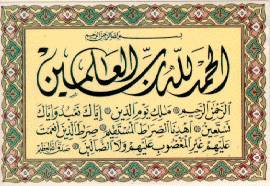 بسم الله الرحمن الرحيم
الحمد لله رب العلمين
الرحمن الرحيم ملك يوم الدين إياك نعبد وإياك
نستعين اهدنا الصراط المستقيم صراط الذين أنعمت
عليهم غير المغضوب عليهم ولا الضالين صدق الله العظيم